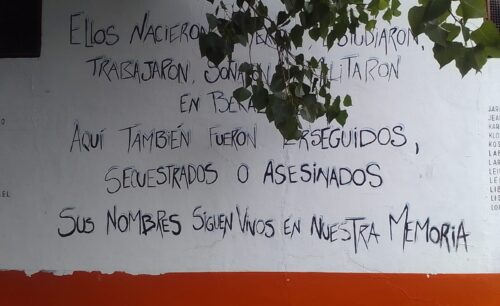 ELLOS NACIERON ESTUDIARON,
TRABAJARON, MILITARON
EN
AQUÍ TAMBIÉN FUERON PERSEGUIDOS,
SECUESTRADOS O ASESINADOS
SUS NOMBRES SIGUEN VIVOS EN NUESTRA MEMORIA